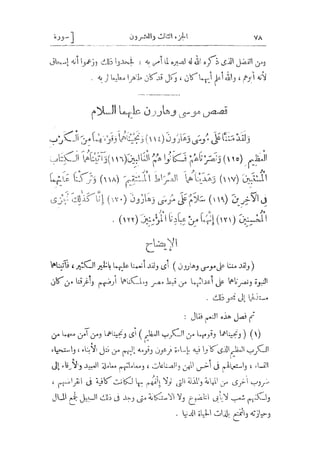 ٧٨ الجزء الثالث والعشرون [ - سورة
ومن الفضل الذى ذكره الله له لصبره لما أمر به
لأنه أبوهم، والله أعلم أيهما كان، وكل قد كان طاهرا مطيعا لربه.
قصص موسى وهارون عليهما السلام
وَلَقَدْ مَنَنَّا عَلَى مُوسَى وَهَارُونَ (١١٤) وَنَجَّيْنَاهُمَا وَقَوْمَهُمَا مِنَ الْكَرْبِ
الْعَظِيمِ (١١٥) وَنَصَرْنَاهُمْ فَكَانُوا هُمُ الْغَالِبِينَ (١١٦) وَآتَيْنَاهُمَا الْكِتَابَ
الْمُسْتَبِينَ (١١٧) وَهَدَيْنَاهُمَا الصِّرَاطَ الْمُسْتَقِيمَ (١١٨) وَتَرَكْنَا عَلَيْهِمَا
فِي الْآخِرِينَ (١١٩) سَلَامٌ عَلَى مُوسَى وَهَارُونَ (١٢٠) إِنَّا كَذَلِكَ نَجْزِي
الْمُحْسِنِينَ (١٢١) إِنَّهُمَا مِنْ عِبَادِنَا الْمُؤْمِنِينَ (١٢٢).
الإيضاح
(ولقد مننا على موسى وهارون) أى ولقد أنعمنا عليهما بالخير الكثير، فآتيناهما
النبوة ونصرناهما على أعدائهما من قبط مصر وملكناهما أرضهم وأغرقنا من كان
إلى نحو ذلك.
ثم فصل هذه النعم فقال:
(١) (ونجيناهما وقومهما من الكرب العظيم) أى ونجيناهما ومن آمن معهما من
الكرب العظيم الذى كانوا فيه بإساءة فرعون وقومه إليهم من قتل الأبناء، واستحياء
النساء، واستعمالهم فى أخس المهن والصناعات، ومعاملتهم معاملة العبيد والأرقاء إلى
ضروب أخرى من المهانة والمذلة التى لولا إلفهم بها لكانت كافية فى انقراضهم،
ولكنهم شعب لا يأبى الخضوع ولا الاستكانة متى وجد فى ذلك السبيل لجمع المال
وحيازته والتمتع بلذات الحياة الدنيا.